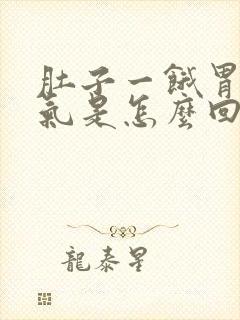 肚子一餓胃
氣是怎麼回
龍泰星